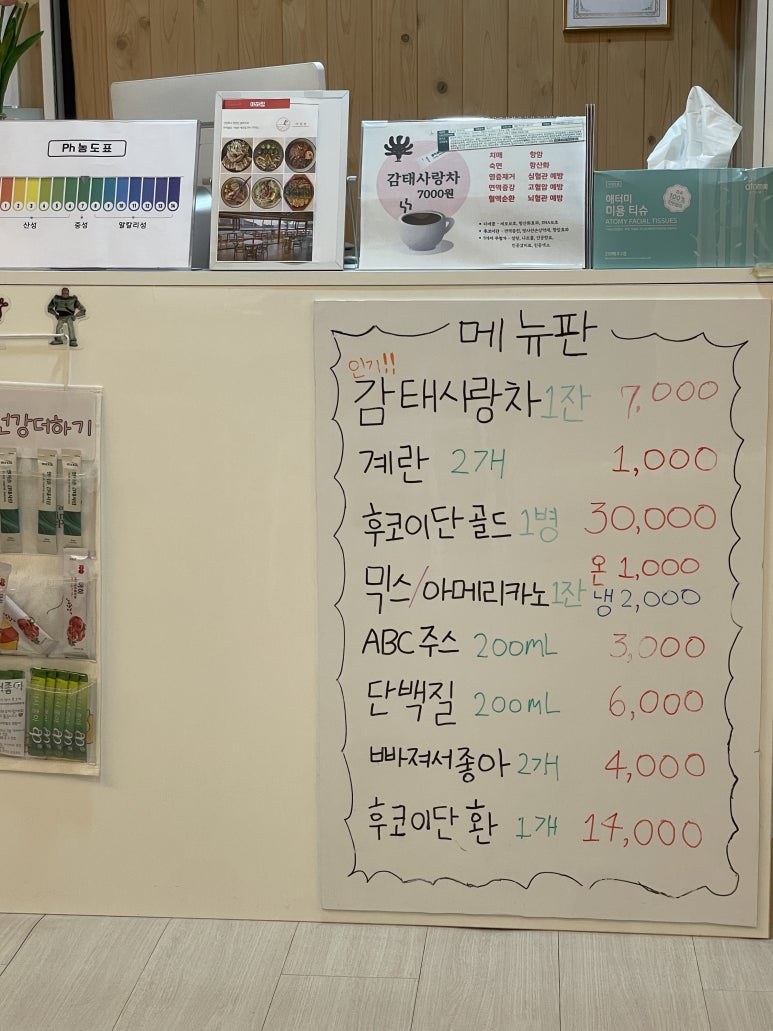 Ph농도표
1 2 3 4 5 6 7 8 9 10 11 12 13 14
산성 중성 알칼리성
감태사랑차
7000원
치매 항암
숙면 항산화
염증제거 심혈관 예방
면역증강 고혈압 예방
혈액순환 뇌혈관 예방
애터미
미용 티슈
ATOMY FACIAL TISSUES
건강더하기
메뉴판
인기!!
감태사랑차 1잔 7,000
계란 2개 1,000
후코이단 골드 1병 30,000
믹스/아메리카노 1잔 온 1,000
냉 2,000
ABC 주스 200mL 3,000
단백질 200mL 6,000
빠져서좋아 2개 4,000
후코이단 환 1개 14,000